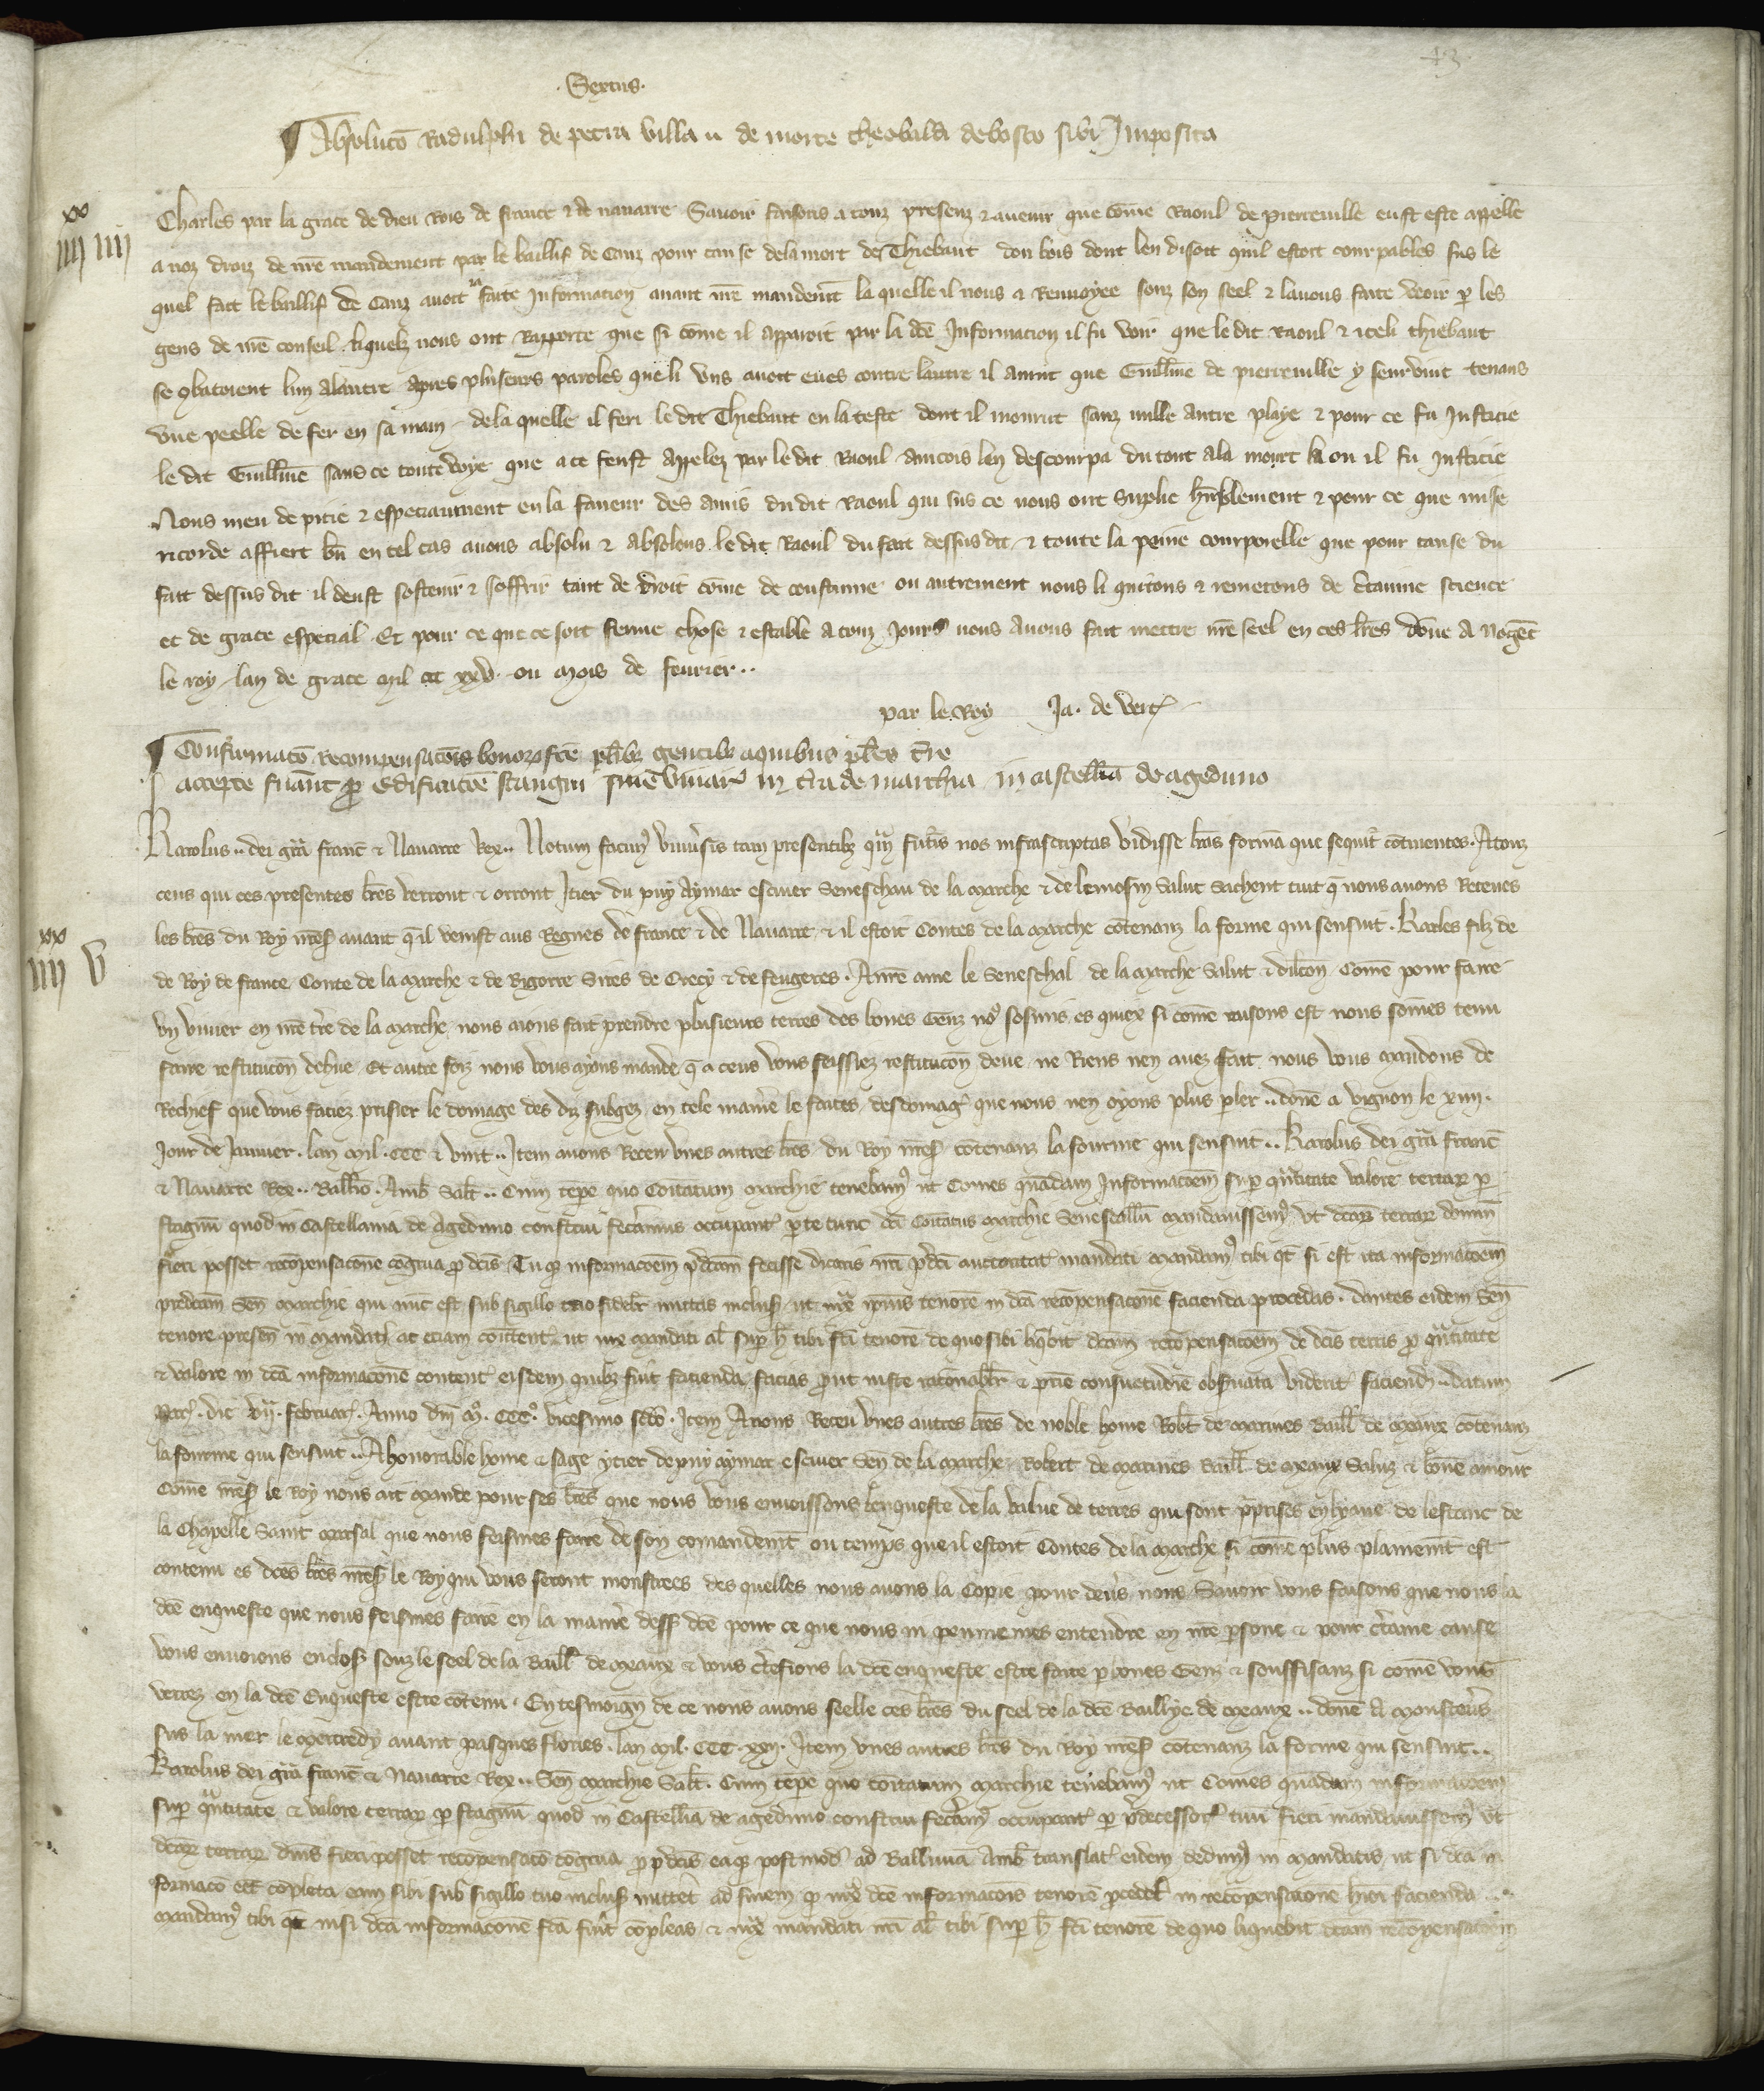 43
Sextus
¶ Absoluco Radulphi de petra villa de morte theobaldi de bosco sibi Imposita
xx
iiij iiij
Charles par la grace de dieu Rois de france et de nauarre Sauoir faisons a touz presenz et auenir que come Raoul de pierreuille eust este appelle
a noz droiz de nre mandement par le baillif de Caux pour cause de la mort de Thiebaut dou bois dont len disoit quil estoit courpables sus le
quel fait le baillif de Caux auoit ia faite Informacion auant nre mandemt la quelle il nous a Renuoyee souz son seel et lauons faite veoir p les
gens de nre conseil liquelz nous ont Rapporte que si come il apparoit par la dce Informacion il fu voir que le dit Raoul et iceli thiebaut
se gbatoient lun a lautre apres pluseurs paroles que li uns auoit eues contre lautre il auint que Guillme de pierreuille y seuruint tenans
vne peelle de fer en sa main de la quelle il feri le dit Thiebaut en la teste dont il mourut sanz nulle autre playe et pour ce fu Justicie
le dit Guillme sanz ce toute voye que a ce feust appelez par le dit Raoul ancois len descourpa du tout a la mourt la ou il fu justicie
Nous meu de pitie et especiaument en la faueur des amis du dit Raoul qui sus ce nous ont suplie humblement et pour ce que mise
ricorde affiert bn en tel cas auons absolu et absolons le dit Raoul du fait dessus dit et toute la peine courporelle que pour cause du
fait dessus dit il deust soffrir tant de droit come de coustume ou autrement nous li quitons et remetons de ctainne science
et de grace especial Et pour ce que ce soit ferme chose et estable a touz jours nous auons fait mettre nre seel en ces lres Done A Nogent
le roy lan de grace mil ccc xxv ou mois de feurier..
par le Roy Ja. de vert
¶ Confirmaco Recompensacois bonor fce plibz gentibz a quibus ples tre
accepte fuant p Edificacoe stangni siue viuar in tra de marchia in castellia de ageduno
xx
iiij v
Karolus.. dei gra franc et Nauarre Rex.. Notum facim vniusis tam presentibz qm futis nos infrascriptas vidisse lras forma que sequit cotinentes. A touz
ceus qui ces presentes lres verront et orront Itier du puy Aymar escuier Seneschau de la marche et de lemosin Salut Sachent tuit q nous auons Receues
les lres du Roy nres auant qil venist aus Regnes de france et de Nauarre et il estoit Contes de la marche cotenanz la forme qui sensuit. Karles filz de
de Roy de france Conte de la marche et de Bigorre Sires de Crecy et de feugeres. A nre ame le Seneschal de la marche Salut et dilcon Come pour faire
vn viuier en nre tre de la marche nous aions fait prendre plusieurs terres des bones genz es quiex si come raisons est nous somes tenu
faire restitucon dehue Et autre foiz nous vous ayons mande q a ceus vous feissiez restitucon deue ne Riens nen auez fait nous vous mandons de
Rechief que vous faciez prisier le domage des diz subgez en tele maniere le faites desdomag que nous nen oyons plus pler.. done a vignon le xiiij.
jour de Januier. lan mil. ccc et vint.. Item auons Receu vnes autres lres du Roy nres cotenanz la fourme qui sensuit.. Karolus dei gra franc
et Nauarre Rex.. Balliuo. Amb Salt.. Cum tepe quo Comitatum marchie tenebam ut Comes quandam Informacoem sup quantitate valore terrar p
stagnu quod in Castellania de Agedimo construi fecimus occupant p te tunc dci Comitatus marchie Senescallu mandauissem vt dcar terrar
fieri posset recopensacone cogrua p dcis Tu q informacoem pdcam fecisse dicaris nri pdci auctoritat mandati mandam tibi qt si est ita informacoem
predcam Sen marchie qui nuc est sub sigillo tuo fidelr mittas inclus ut iux ipius tenore in dca recopensacone facienda procedas. dantes eidem Sen
tenore presen in mandat ac etiam comittent ut iux mandati al sup h tibi fci tenore de quo sibi liqbit dcam recopensacoem de dcis terris p quantitate
et valore in dca informacone content eisdem quibz fuit facienda facias put iuste ratonabilr et pcie consuetudie obseruata viderit faciend.. datum
Par. die vij. februar. Anno dni mo. ccco. vicesimo scdo. Item Auons Receu vnes autres lres de noble home Robt de marines Baill de meaux cotenanz
la fourme qui sensuit.. A honorable home et sage ytier de puy aymar escuier Sen de la marche Robert de marines Baill de meaux Saluz et bone amour
Come nres le Roy nous ait mande pour ses lres que nous vous enuoissons lenqueste de la value de terres qui sont pprises en lyaue de lestanc de
la Chapelle Saint marsal que nous feismes faire de son comandemt ou temps que il estoit Contes de la marche si come plus plainemt est
contenu es dces lres nres le Roy qui vous seront monstrees des quelles nous auons la copie pour deus nous Sauoir vous faisons que nous la
dce enqueste que nous feismes faire en la maniere dess dce pour ce que nous ni peumemes entendre en nre psone et pour ctaine cause
vous enuoions enclose souz le seel de la Baill de meaux et vous ctefions la dce enqueste estre faite p bones Genz et souffisanz si come vous
verrez en la dce Enqueste estre cotenu. En tesmoign de ce nous auons seelle ces lres du seel de la dce Baillye de meaux.. done A monsteus
sus la mer le mercredy auant pasques flories. lan mil. ccc. xxij. Item vnes autres lres du Roy nres cotenanz la forme qui sensuit..
Karolus dei gra franc et Nauarre Rex.. Sen marchie Salt. Cum tepe quo comitatum marchie tenebam ut Comes quadam informacoem
sup quantitate et valore terrar p stagnu quod in Castellia de agedimo construi fecim occupant p pdecessore tuu fieri mandauissem vt
dcar terrar dnis fieri posset recopensaco cogrua p pdcis eaq postmod ad Balliuia Amb translat eidem dedim in mandatis ut si dca in
formaco eet copleta eam sibi sub sigillo tuo inclus mittet ad finem q iux dce informacois tenore pcedet in recopensacone hmoi facienda..
mandam tibi qt nisi dca informacone fca fuit copleas et iux mandati nri al tibi sup h fci tenore de quo liquebit dcam recopensacoem